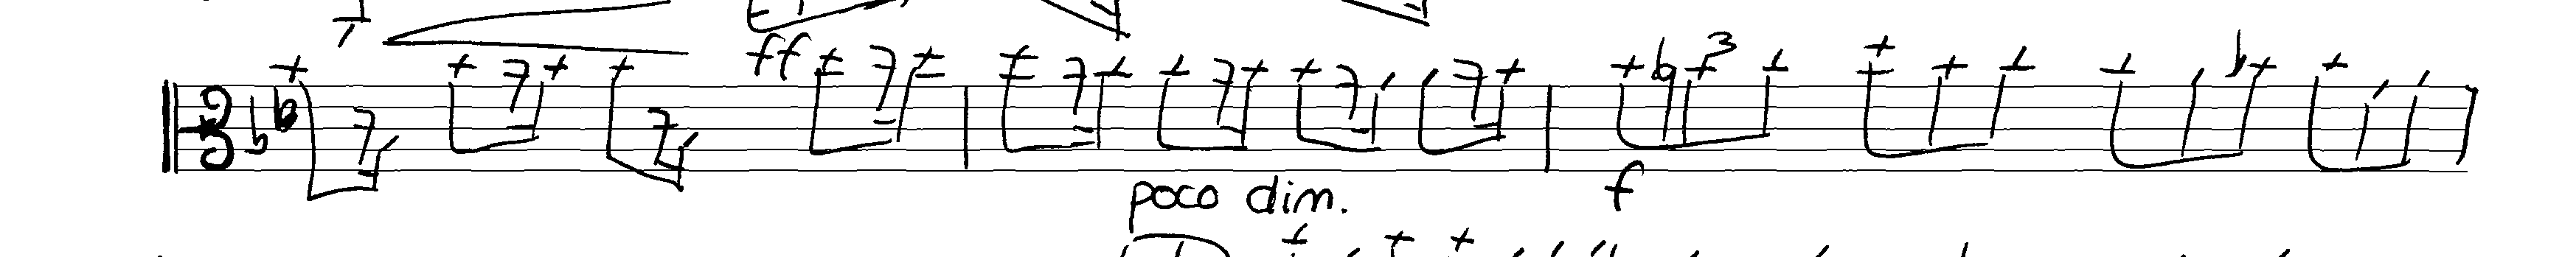 ff
3
poco dim. f